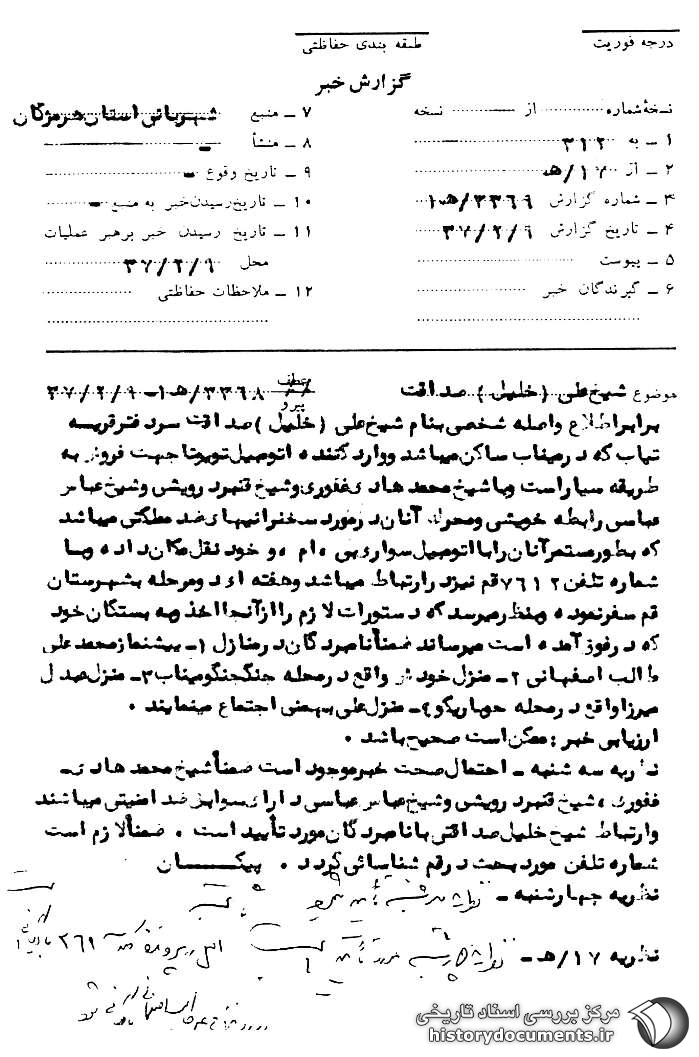 درجه فوریت
طبقه بندی حفاظتی
گزارش خبر
نسخهٔ شماره از نسخه
۱ ـ به ۳۱۲
۲ ـ از ۱۷/هـ
۳ ـ شماره گزارش ۳۳۶۹/هـ۱
۴ ـ تاریخ گزارش ۳۷/۲/۹
۵ ـ پیوست
۶ ـ گیرندگان خبر
۷ ـ منبع شهربانی استان هرمزگان
۸ ـ منشأ ـ
۹ ـ تاریخ وقوع ـ
۱۰ ـ تاریخ رسیدن خبر به منبع ـ
۱۱ ـ تاریخ رسیدن خبر برهبر عملیات
محل ۳۷/۲/۹
۱۲ ـ ملاحظات حفاظتی
موضوع شیخ علی (خلیل) صداقت
عطف
پیرو ۳۳۶۸/هـ۱ـ ۳۷/۲/۹
برابر اطلاع واصله شخصی بنام شیخ علی (خلیل) صداقت سردفتر قریه
تیاب که در میناب ساکن میباشد و وارد کننده اتومبیل تویوتا جهت فروش به
طریقه سیار است وبا شیخ محمد هادی غفوری و شیخ قنبر درویشی و شیخ عباس
عباسی رابطه خویشی و محرک آنان در مورد سخنرانیهای ضد مملکتی میباشد
که بطور مستمر آنان را با اتومبیل سواری بی ام و خود نقل مکان داده وبا
شماره تلفن ۷۶۱۲ قم نیز در ارتباط میباشد وهفته ای دو مرحله بشهرستان
قم سفر نموده و بنظر میرسد که دستورات لازم را از آنجا اخذ و به بستگان خود
که در فوق آمده است میرساند ضمناً نامبردگان در منازل ۱ـ پیشنماز محمد علی
طالب اصفهانی ۲ـ منزل خودش واقع در محله جنگجنگو میناب ۳ـ منزل عبدل
میرزا واقع در محله ۴ـ منزل علی بهمنی اجتماع مینمایند .
ارزیابی خبر : ممکن است صحیح باشد .
نظریه سه شنبه ـ احتمال صحت خبر موجود است ضمناً شیخ محمد هادی ـ
غفوری ، شیخ قنبر درویشی و شیخ عباس عباسی دارای سوابق ضد امنیتی میباشند
وارتباط شیخ خلیل صداقتی با نامبردگان مورد تأیید است . ضمناً لازم است
شماره تلفن مورد بحث در قم شناسائی گردد . پیکان
نظریه چهارشنبه ـ نظریه سه شنبه تأیید میشود
نظریه ۱۷/هـ ـ نظریه چهارشنبه مورد تأیید است
مرکز بررسی اسناد تاریخی
historydocuments.ir